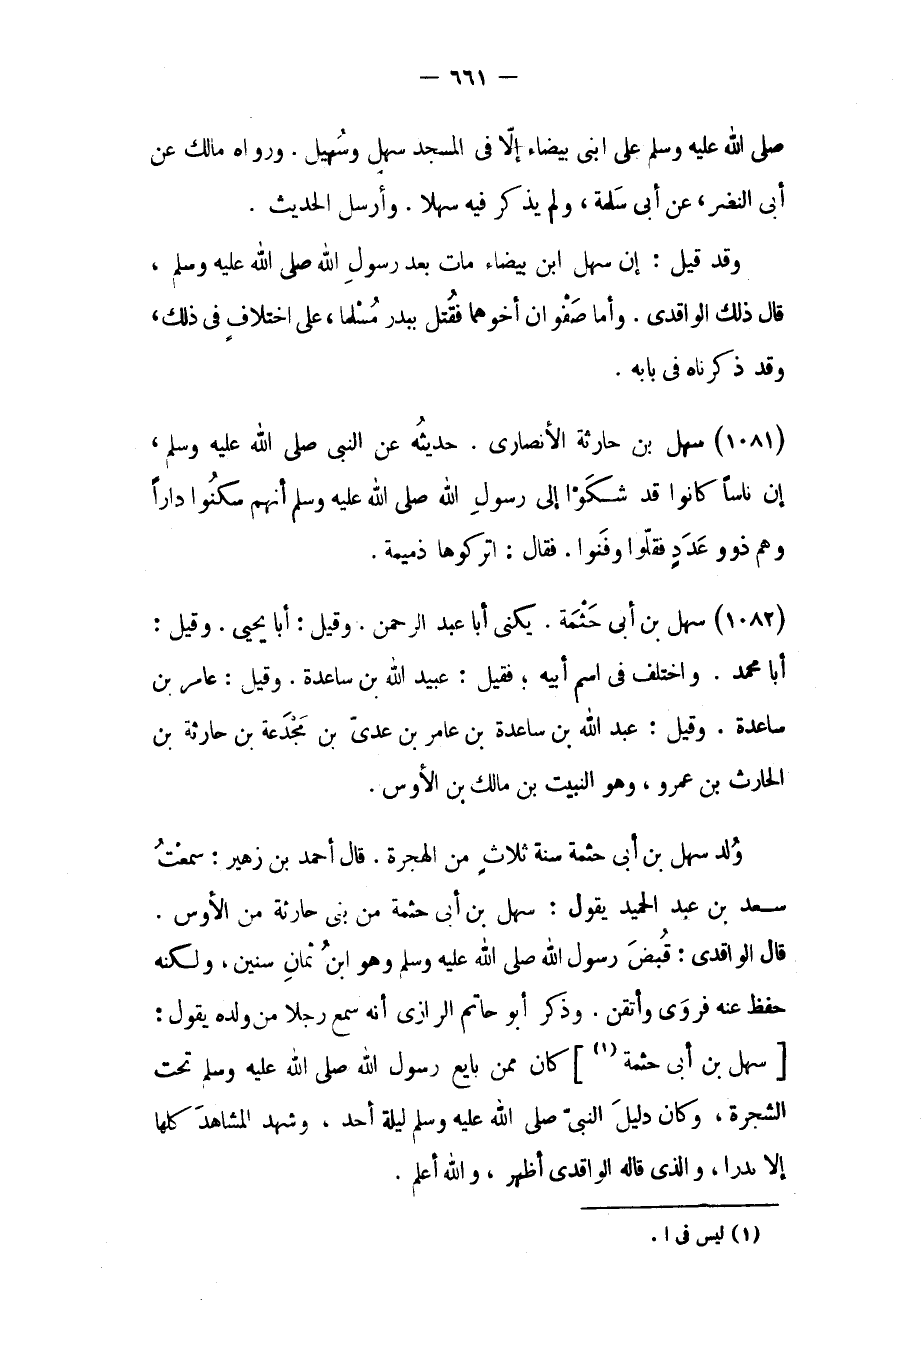 — ٦٦١ —
صلى الله عليه وسلم على ابنى بيضاء إلّا فى المسجد سهلٍ وسُهيل . ورواه مالك عن
أبى النضر، عن أبى سَلمة ، ولم يذكر فيه سهلا . وأرسل الحديث .
وقد قيل : إن سهل ابن بيضاء مات بعد رسولِ الله صلى الله عليه وسلم ،
قال ذلك الواقدى . وأما صَفْوان أخوهما فقُتل ببدر مُسْلما ، على اختلافٍ فى ذلك،
وقد ذكرناه فى بابه .
(١٠٨١) سهل بن حارثة الأنصارى . حديثُه عن النبى صلى الله عليه وسلم ،
إن ناساً كانوا قد شكَوْا إلى رسولِ الله صلى الله عليه وسلم أنهم سكنُوا داراً
وهم ذوو عَدَدٍ فقلّوا وفَنوا . فقال : اتركوها ذميمة .
(١٠٨٢) سهل بن أبى حَثْمَة . يكنى أبا عبد الرحمن . وقيل : أبا يحيى . وقيل :
أبا محمد . واختلف فى اسم أبيه ؛ فقيل : عبيد الله بن ساعدة . وقيل : عامر بن
ساعدة . وقيل : عبد الله بن ساعدة بن عامر بن عدىّ بن مَجْدَعة بن حارثة بن
الحارث بن عمرو ، وهو النبيت بن مالك بن الأوس .
وُلد سهل بن أبى حثمة سنة ثلاثٍ من الهجرة . قال أحمد بن زهير : سمعْتُ
سعد بن عبد الحميد يقول : سهل بن أبى حثمة من بنى حارثة من الأوس .
قال الواقدى : قُبضَ رسول الله صلى الله عليه وسلم وهو ابنُ ثمانِ سنين ، ولكنه
حفظ عنه فروَى وأتقن . وذكر أبو حاتم الرازى أنه سمع رجلا من ولده يقول :
[ سهل بن أبى حثمة (١) ] كان ممن بايع رسول الله صلى الله عليه وسلم تحت
الشجرة ، وكان دليلَ النبىّ صلى الله عليه وسلم ليلة أحد ، وشهد المشاهدَ كلها
إلا بدرا ، والذى قاله الواقدى أظهر ، والله أعلم .
(١) ليس فى ا .